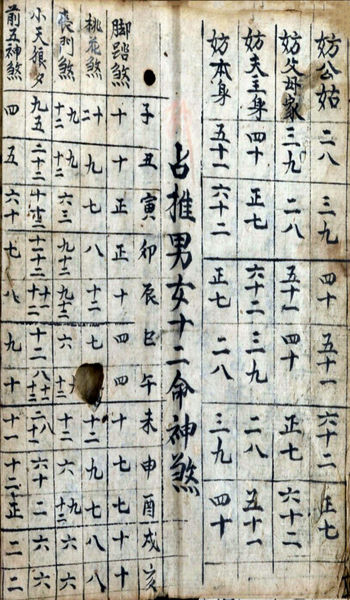 妨公姑 二八 三九 四十 五十一 六十二 正七
妨父母家 三九 二八 五十一 四十 正七 六十二
妨夫主身 四十 正七 六十二 三九 二八 五十一
妨本身 五十一 六十二 正七 二八 三九 四十
占推男女十二命神煞
子 丑 寅 卯 辰 巳 午 未 申 酉 戌 亥
脚踏煞 十 十 正 正 十 四 四 十 七 七 十 十
桃花煞 九 七 八 十二 七 十二 九 七 八 八
喪門煞 九十二 九十二 六三 九十二 六 十二 六 九十二 六 六
小天狼夕 九五 二十二 六十 二 六 六
前五神煞 四 五 六十 七 八 九 十 十一 十二 正 二 二